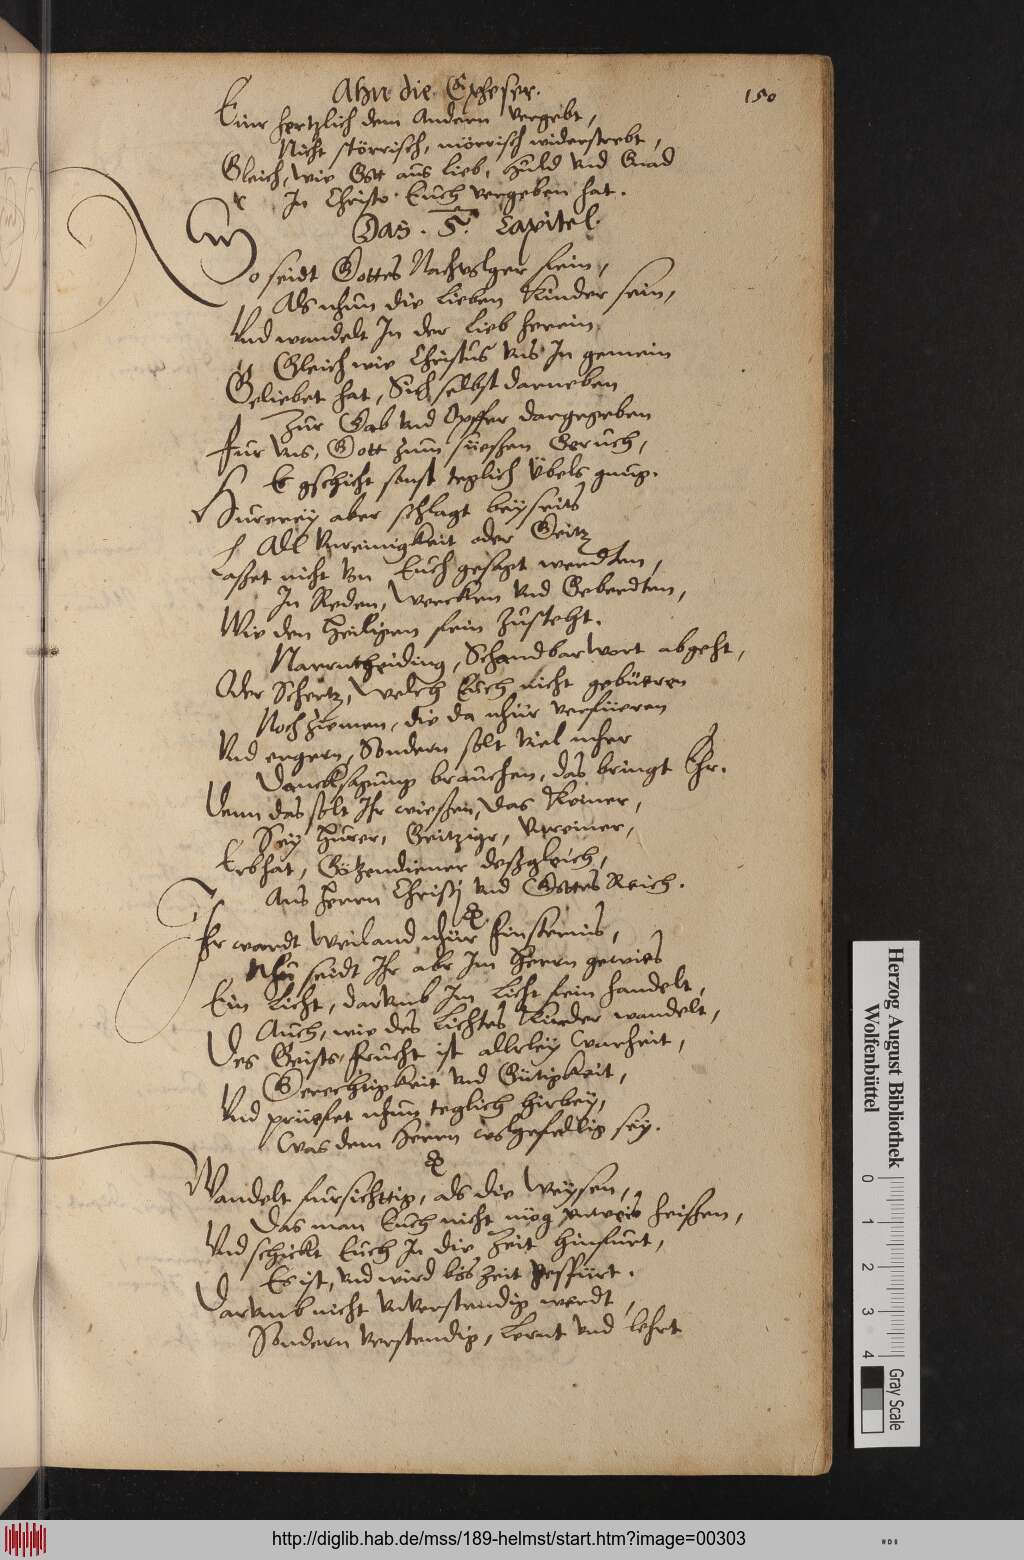 Ahn die Epheser.
150
Einr hertzlich dem Andern vergebt,
Nicht störrisch, mörrisch widerstrebt,
Gleich, wie Gott aus lieb, Huld vnd Gnad
In Christo Euch vergeben hat.
Das . 5. Capitel.
So seidt Gottes Nachvolger fein,
Als nhun die lieben Kinder sein,
Vnd wandelt In der lieb herein
Gleich wie Christus vns In gemein
Geliebet hat, Sich selbst darneben
Zur Gab vnd Opffer dargegeben
Fur vns, Gott zum süeßen Geruch,
Es gschicht sonst teglich Übels gnug.
Hurerey aber schlagt beyseits
All Vnreinigkeit oder Geitz
Laßet nicht von Euch gesagt werdten,
In Reden, Wercken vnd Geberdten,
Wie den Heiligen fein Zusteht.
Narrntheiding, Schandbar Wort abgeht,
Oder Schertz, welch Euch nicht gebüeren
Noch Ziemen, die da nhur verfüeren
Vnd ergern, Sondern solt viel mher
Dancksagung brauchen, das bringt Ehr.
Denn das solt Ihr wießen, das Keiner,
Sey Hurer, Geitziger, Vnreiner,
Erb hat, Götzendiener deßgleich,
Ans Herrn Christj vnd Gottes Reich.
Ihr wardt Weiland nhur Finsternis,
Nhu seidt Ihr abr Im Herrn gewies
Ein Licht, darvmb Im licht fein handelt,
Auch, wie des lichtes Kinder wandelt,
Des Geists frucht ist allrley warheit,
Gerechtigkeit vnd Gütigkeit,
Vnd prüefet nhun teglich hirbey,
Was dem Herrn wolgefellig sey.
Wandelt fursichttig, als die Weysen,
Das man Euch nicht mög vnweis heißen,
Vnd schickt Euch In die Zeit hinfurt,
Es ist, vnd wird bös Zeit gespürt.
Darvmb nicht vnverstendig werdt,
Sondern verstendig, lernt vnd lehrt
Herzog August Bibliothek
Wolfenbüttel
0 1 2 3 4
Gray Scale
http://diglib.hab.de/mss/189-helmst/start.htm?image=00303